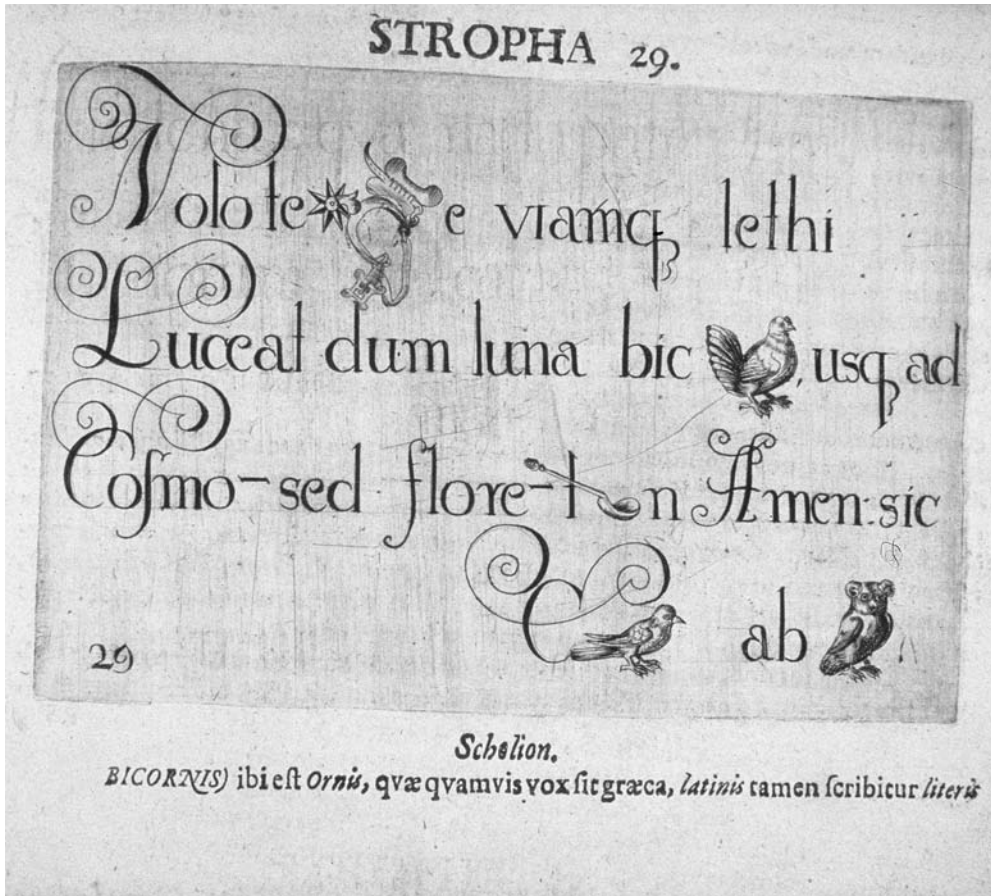 STROPHA 29.
Nolo te e viamq; lethi
Luceat dum luna bic , usq; ad
Coſmo- sed flore-t n Amen: sic
C ab
29
Scholion.
BICORNIS) ibi eſt Ornis, qvæ qvamvis vox ſit græca, latinis tamen ſcribitur literis